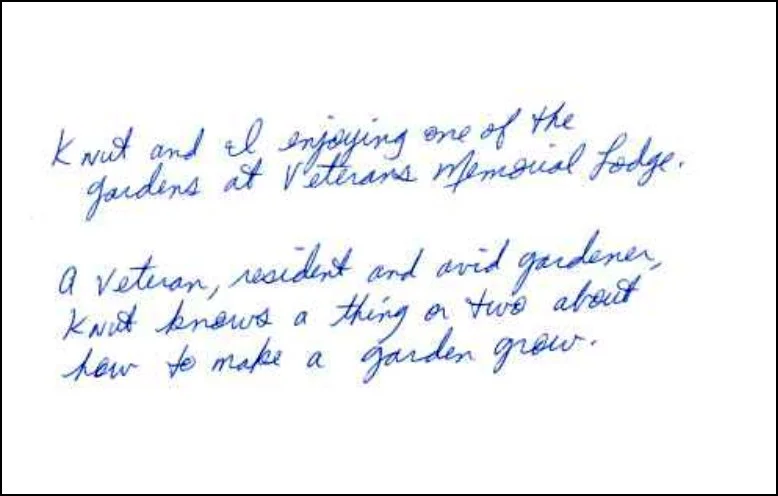 Knut and I enjoying one of the
gardens at Veterans Memorial Lodge.
A veteran, resident and avid gardener,
Knut knows a thing or two about
how to make a garden grow.